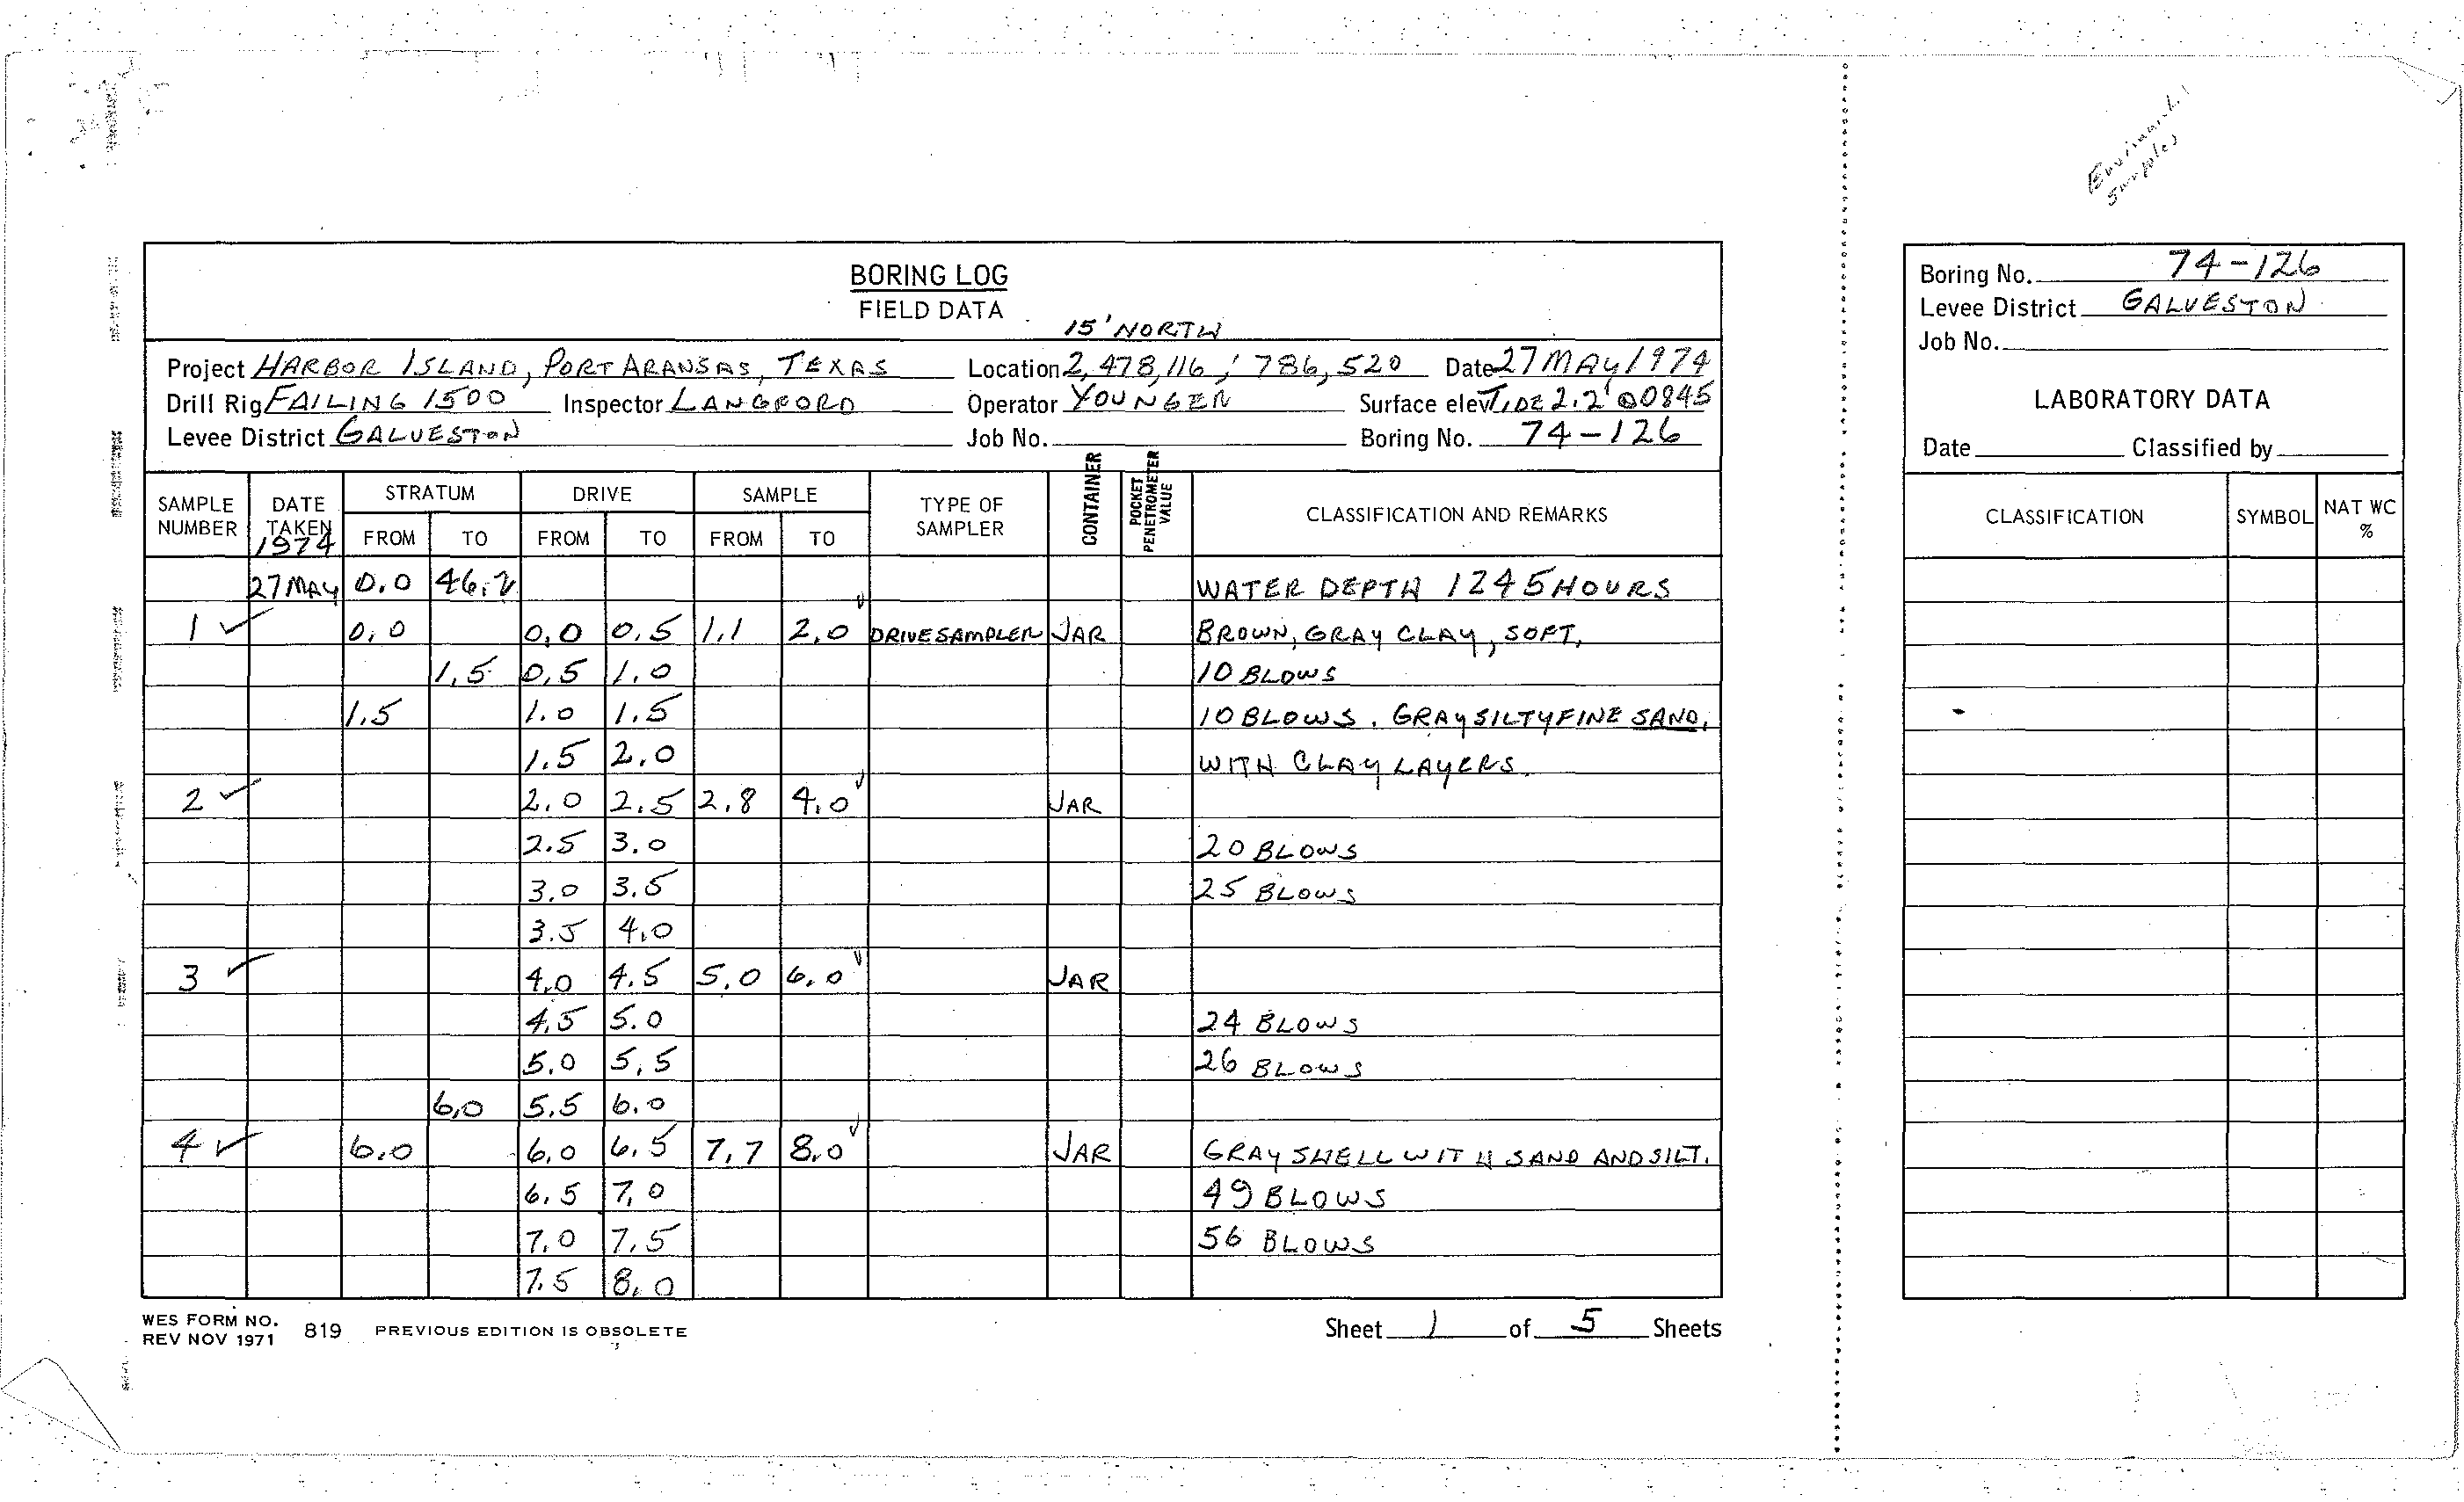 Environ.l.
Samples
BORING LOG
FIELD DATA
15' NORTH
Project HARBOR ISLAND, PORT ARANSAS, TEXAS Location 2,478,116 ; 786,520 Date 27 MAY 1974
Drill Rig FAILING 1500 Inspector LANGFORD Operator YOUNGER Surface elev TIDE 2.2' @ 0845
Levee District GALVESTON Job No. Boring No. 74-126
SAMPLE NUMBER DATE TAKEN 1974 STRATUM FROM TO DRIVE FROM TO SAMPLE FROM TO TYPE OF SAMPLER CONTAINER POCKET PENETROMETER VALUE CLASSIFICATION AND REMARKS
27 MAY 0.0 46.2 WATER DEPTH 1245 HOURS
1 ✓ 0.0 0.0 0.5 1.1 2.0 DRIVE SAMPLER JAR BROWN, GRAY CLAY, SOFT,
1.5 0.5 1.0 10 BLOWS
1.5 1.0 1.5 10 BLOWS. GRAY SILTY FINE SAND,
1.5 2.0 WITH CLAY LAYERS.
2 ✓ 2.0 2.5 2.8 4.0 JAR
2.5 3.0 20 BLOWS
3.0 3.5 25 BLOWS
3.5 4.0
3 ✓ 4.0 4.5 5.0 6.0 JAR
4.5 5.0 24 BLOWS
5.0 5.5 26 BLOWS
6.0 5.5 6.0
4 ✓ 6.0 6.0 6.5 7.7 8.0 JAR GRAY SHELL WITH SAND AND SILT.
6.5 7.0 49 BLOWS
7.0 7.5 56 BLOWS
7.5 8.0
WES FORM NO. 819 PREVIOUS EDITION IS OBSOLETE
REV NOV 1971
Sheet 1 of 5 Sheets
Boring No. 74-126
Levee District GALVESTON
Job No.
LABORATORY DATA
Date Classified by
CLASSIFICATION SYMBOL NAT WC %